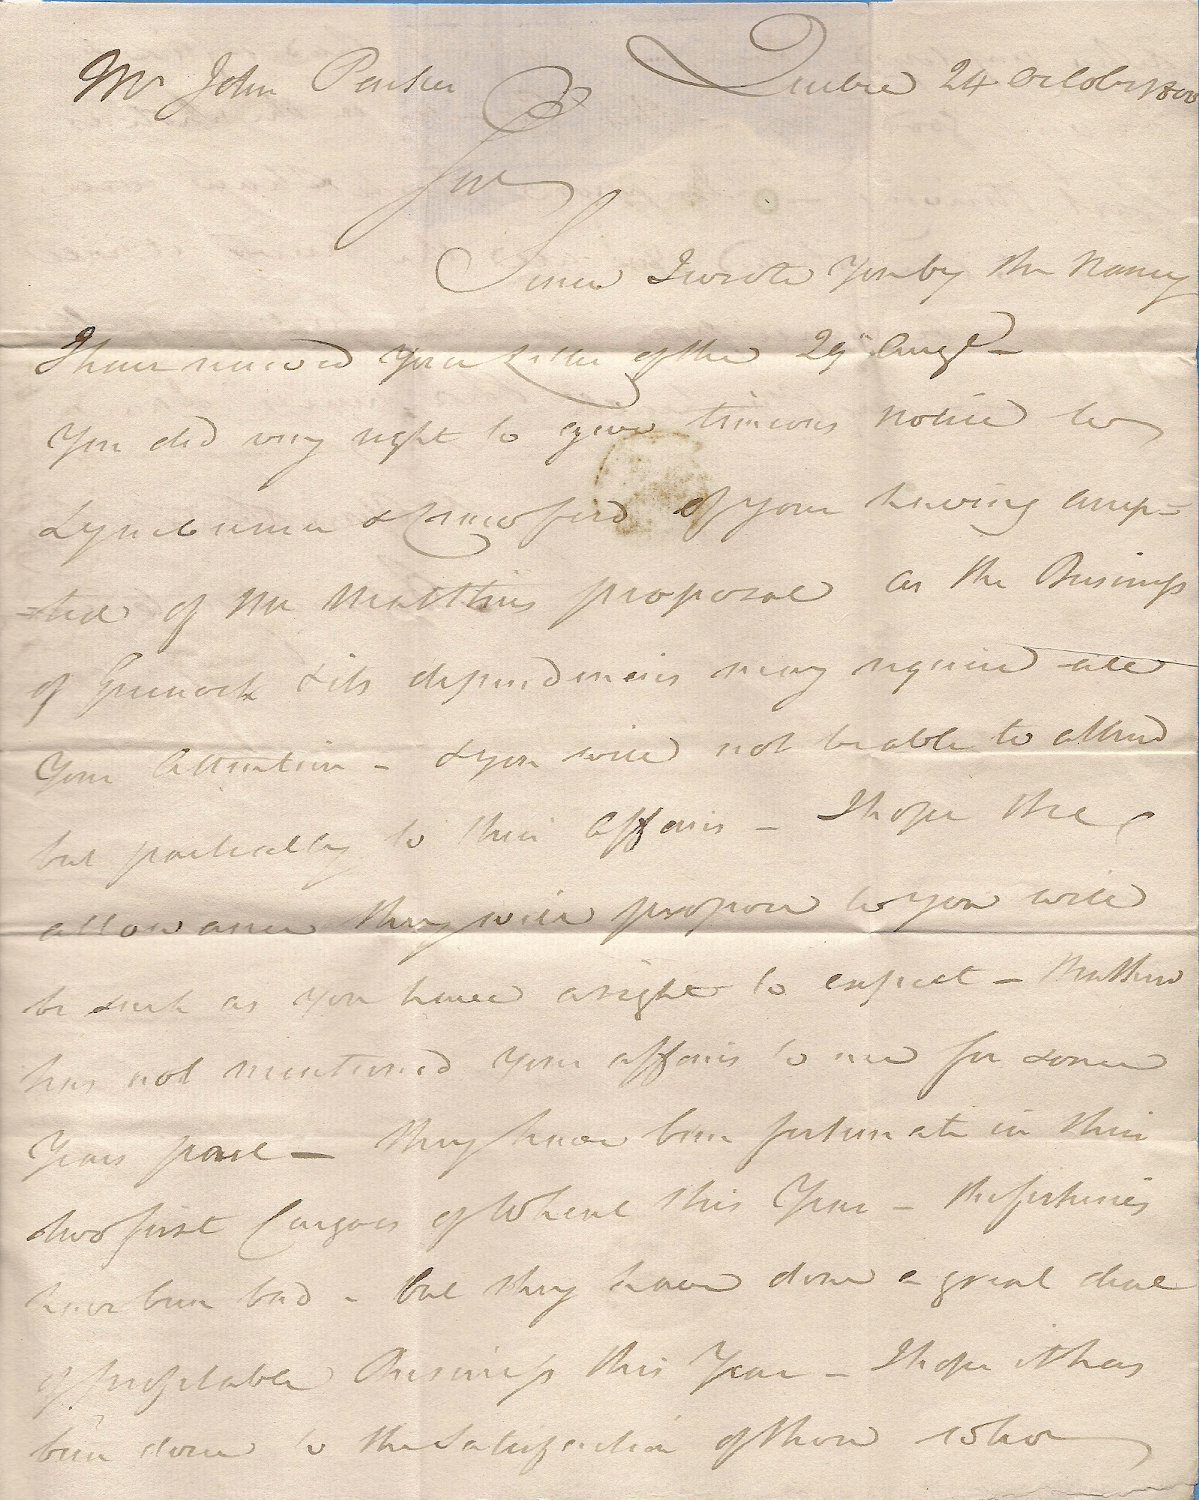 Mr John Parker Quebec 24 October 1800
Sir
Since I wrote You by the Nancy
I have received Your Letter of the 29th Augt –
You did very right to give timeous notice to
Lyneburner & Crawford of your having accep-
-ted of Mr Matthews proposal as the Business
of Greenock & its dependencies may require all
Your Attention – & you will not be able to attend
but partially to their Affairs – I hope the
allowance they will propose to you will
be such as You have a right to expect – Mathew
has not mentioned Your affairs to me for some
Years past – They have been fortunate in their
two first Cargoes of Wheat this Year – the fisheries
have been bad – but they have done a great deal
of profitable Business this Year – I hope it has
been done to the Satisfaction of those who